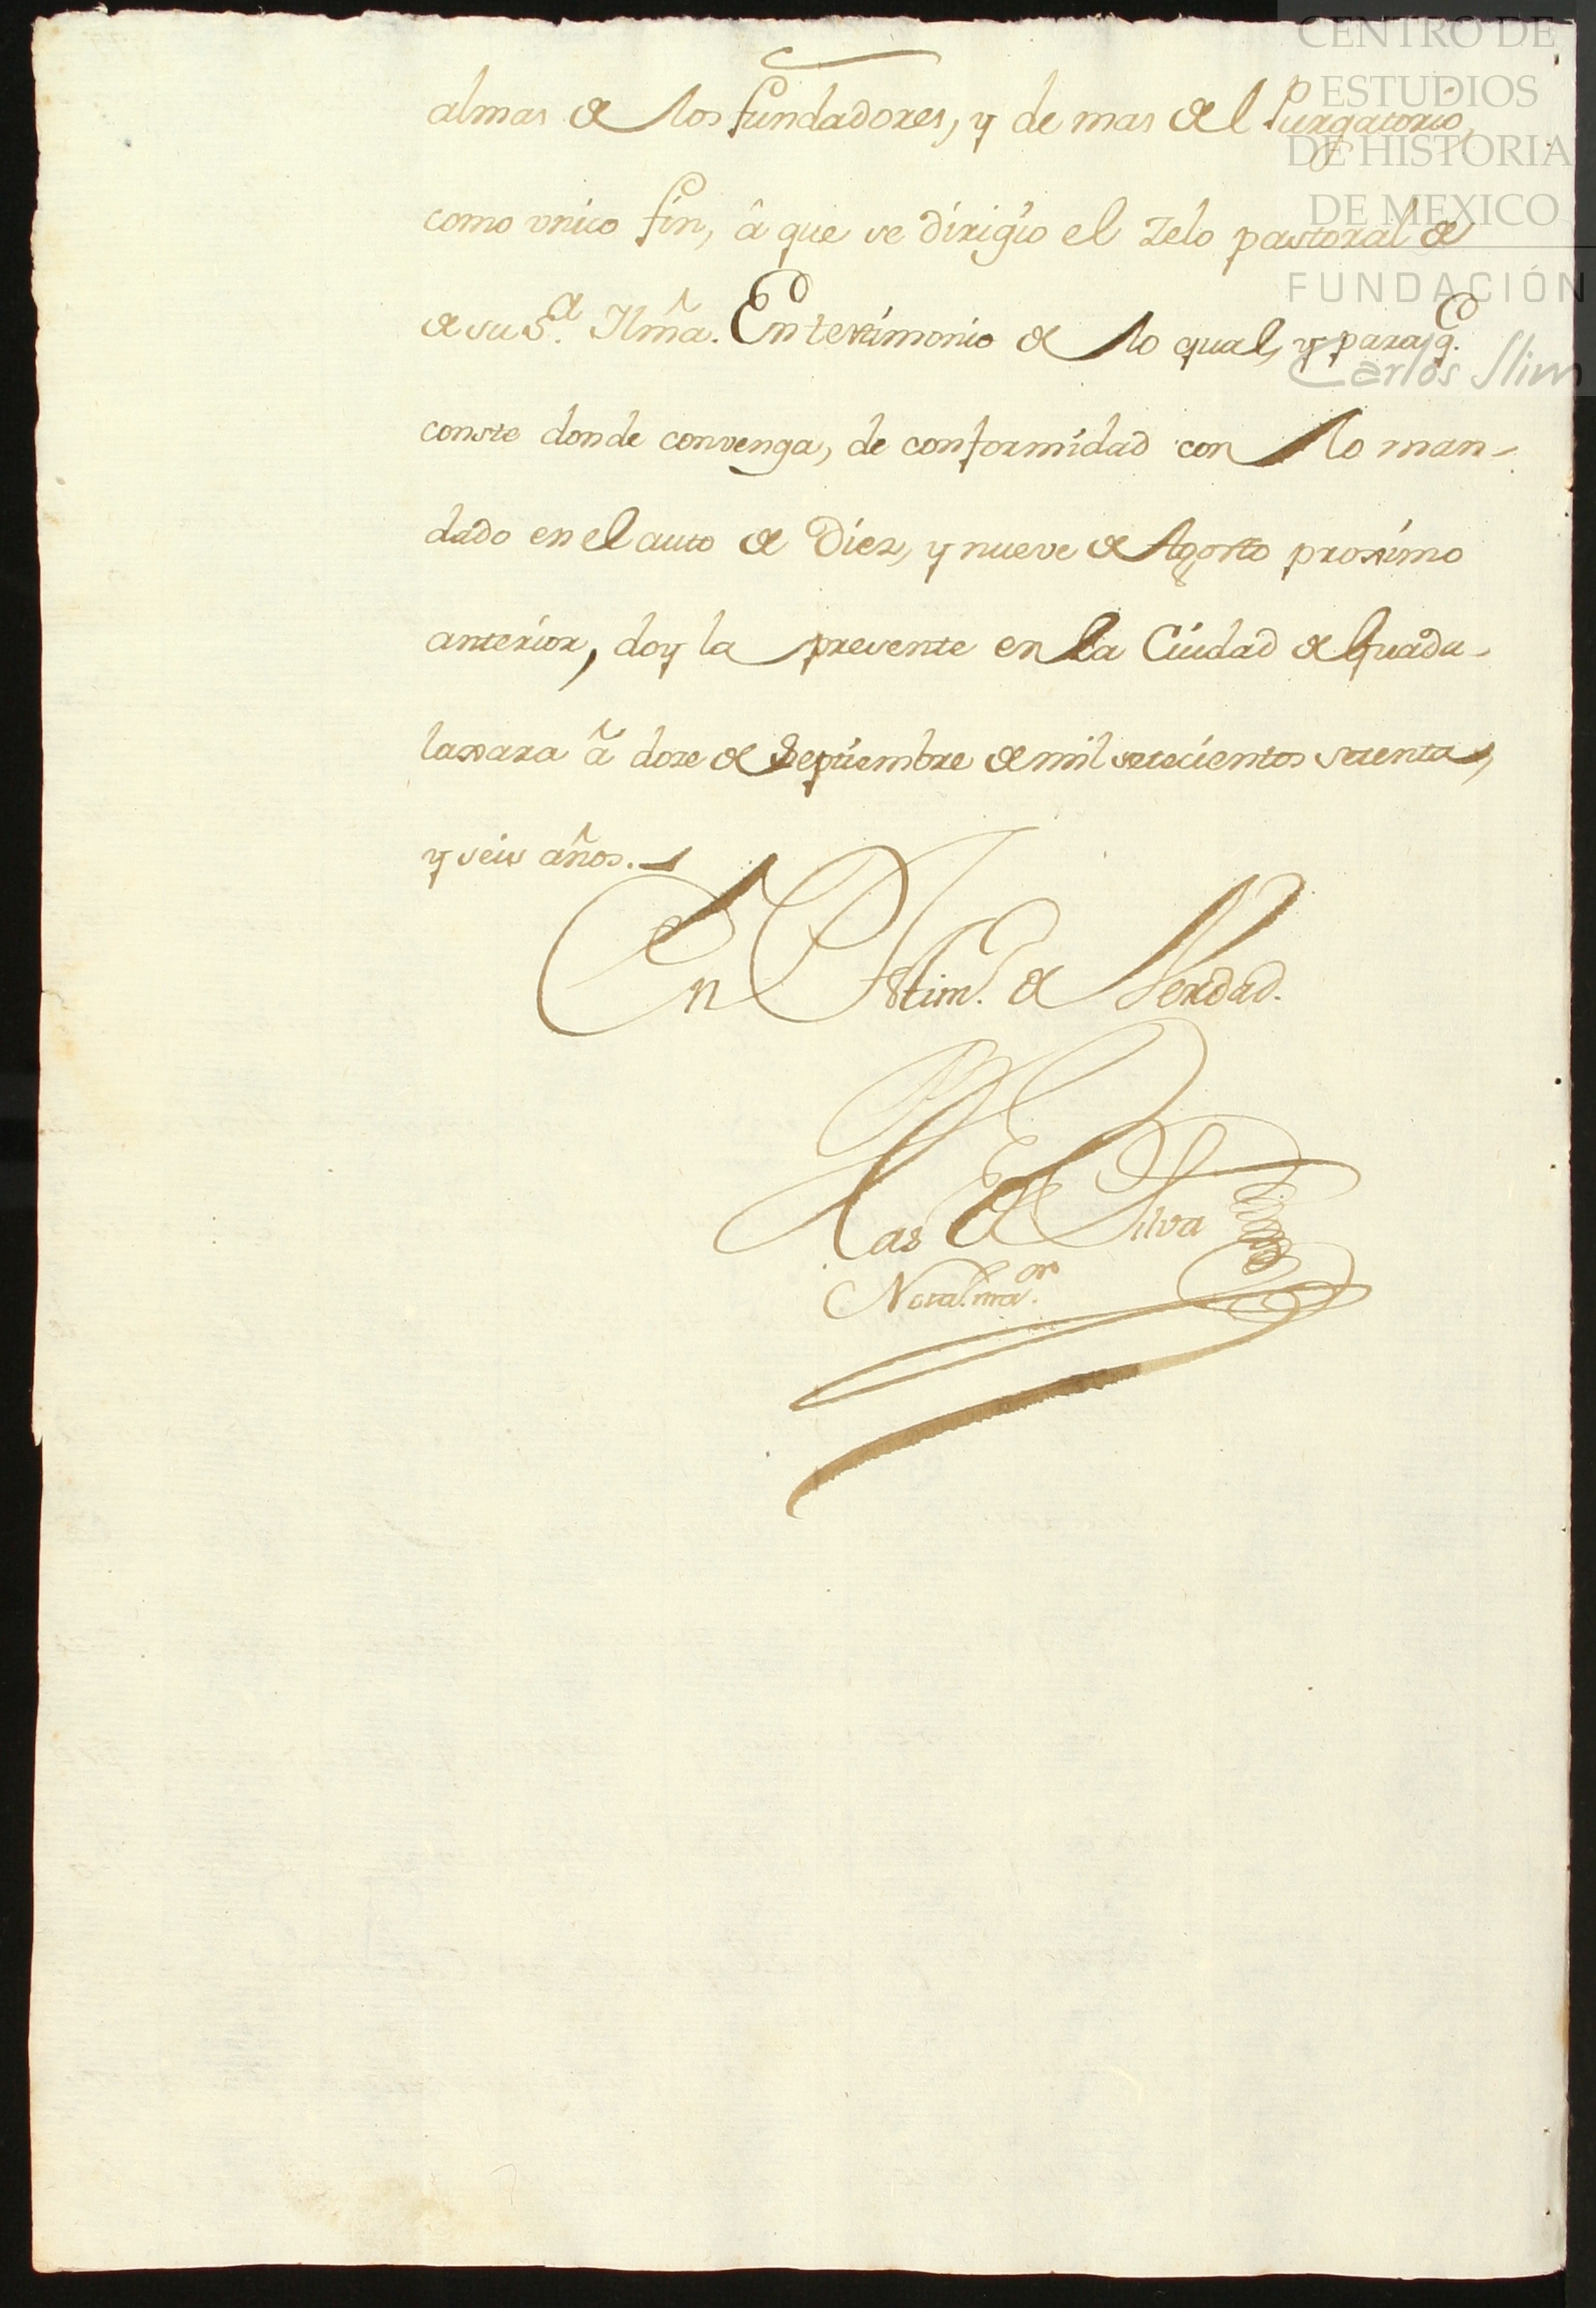 CENTRO DE
ESTUDIOS
DE HISTORIA
DE MEXICO
FUNDACIÓN
Carlos Slim
almas de los fundadores, y de mas del Purgatorio,
como vnico fin, â que se dirigio el zelo pastoral de
de su S.ª Ilmã. En testimonio de lo qual, y para q.e
conste donde convenga, de conformidad con lo man-
dado en el auto de Diez, y nueve de Agosto proximo
anterior, doy la presente en la Ciudad de Guada-
laxara â doze de Septiembre de mil setecientos setenta,
y seis años.
En Testim.º de Verdad.
Blas de Silva
Not.a ma.or